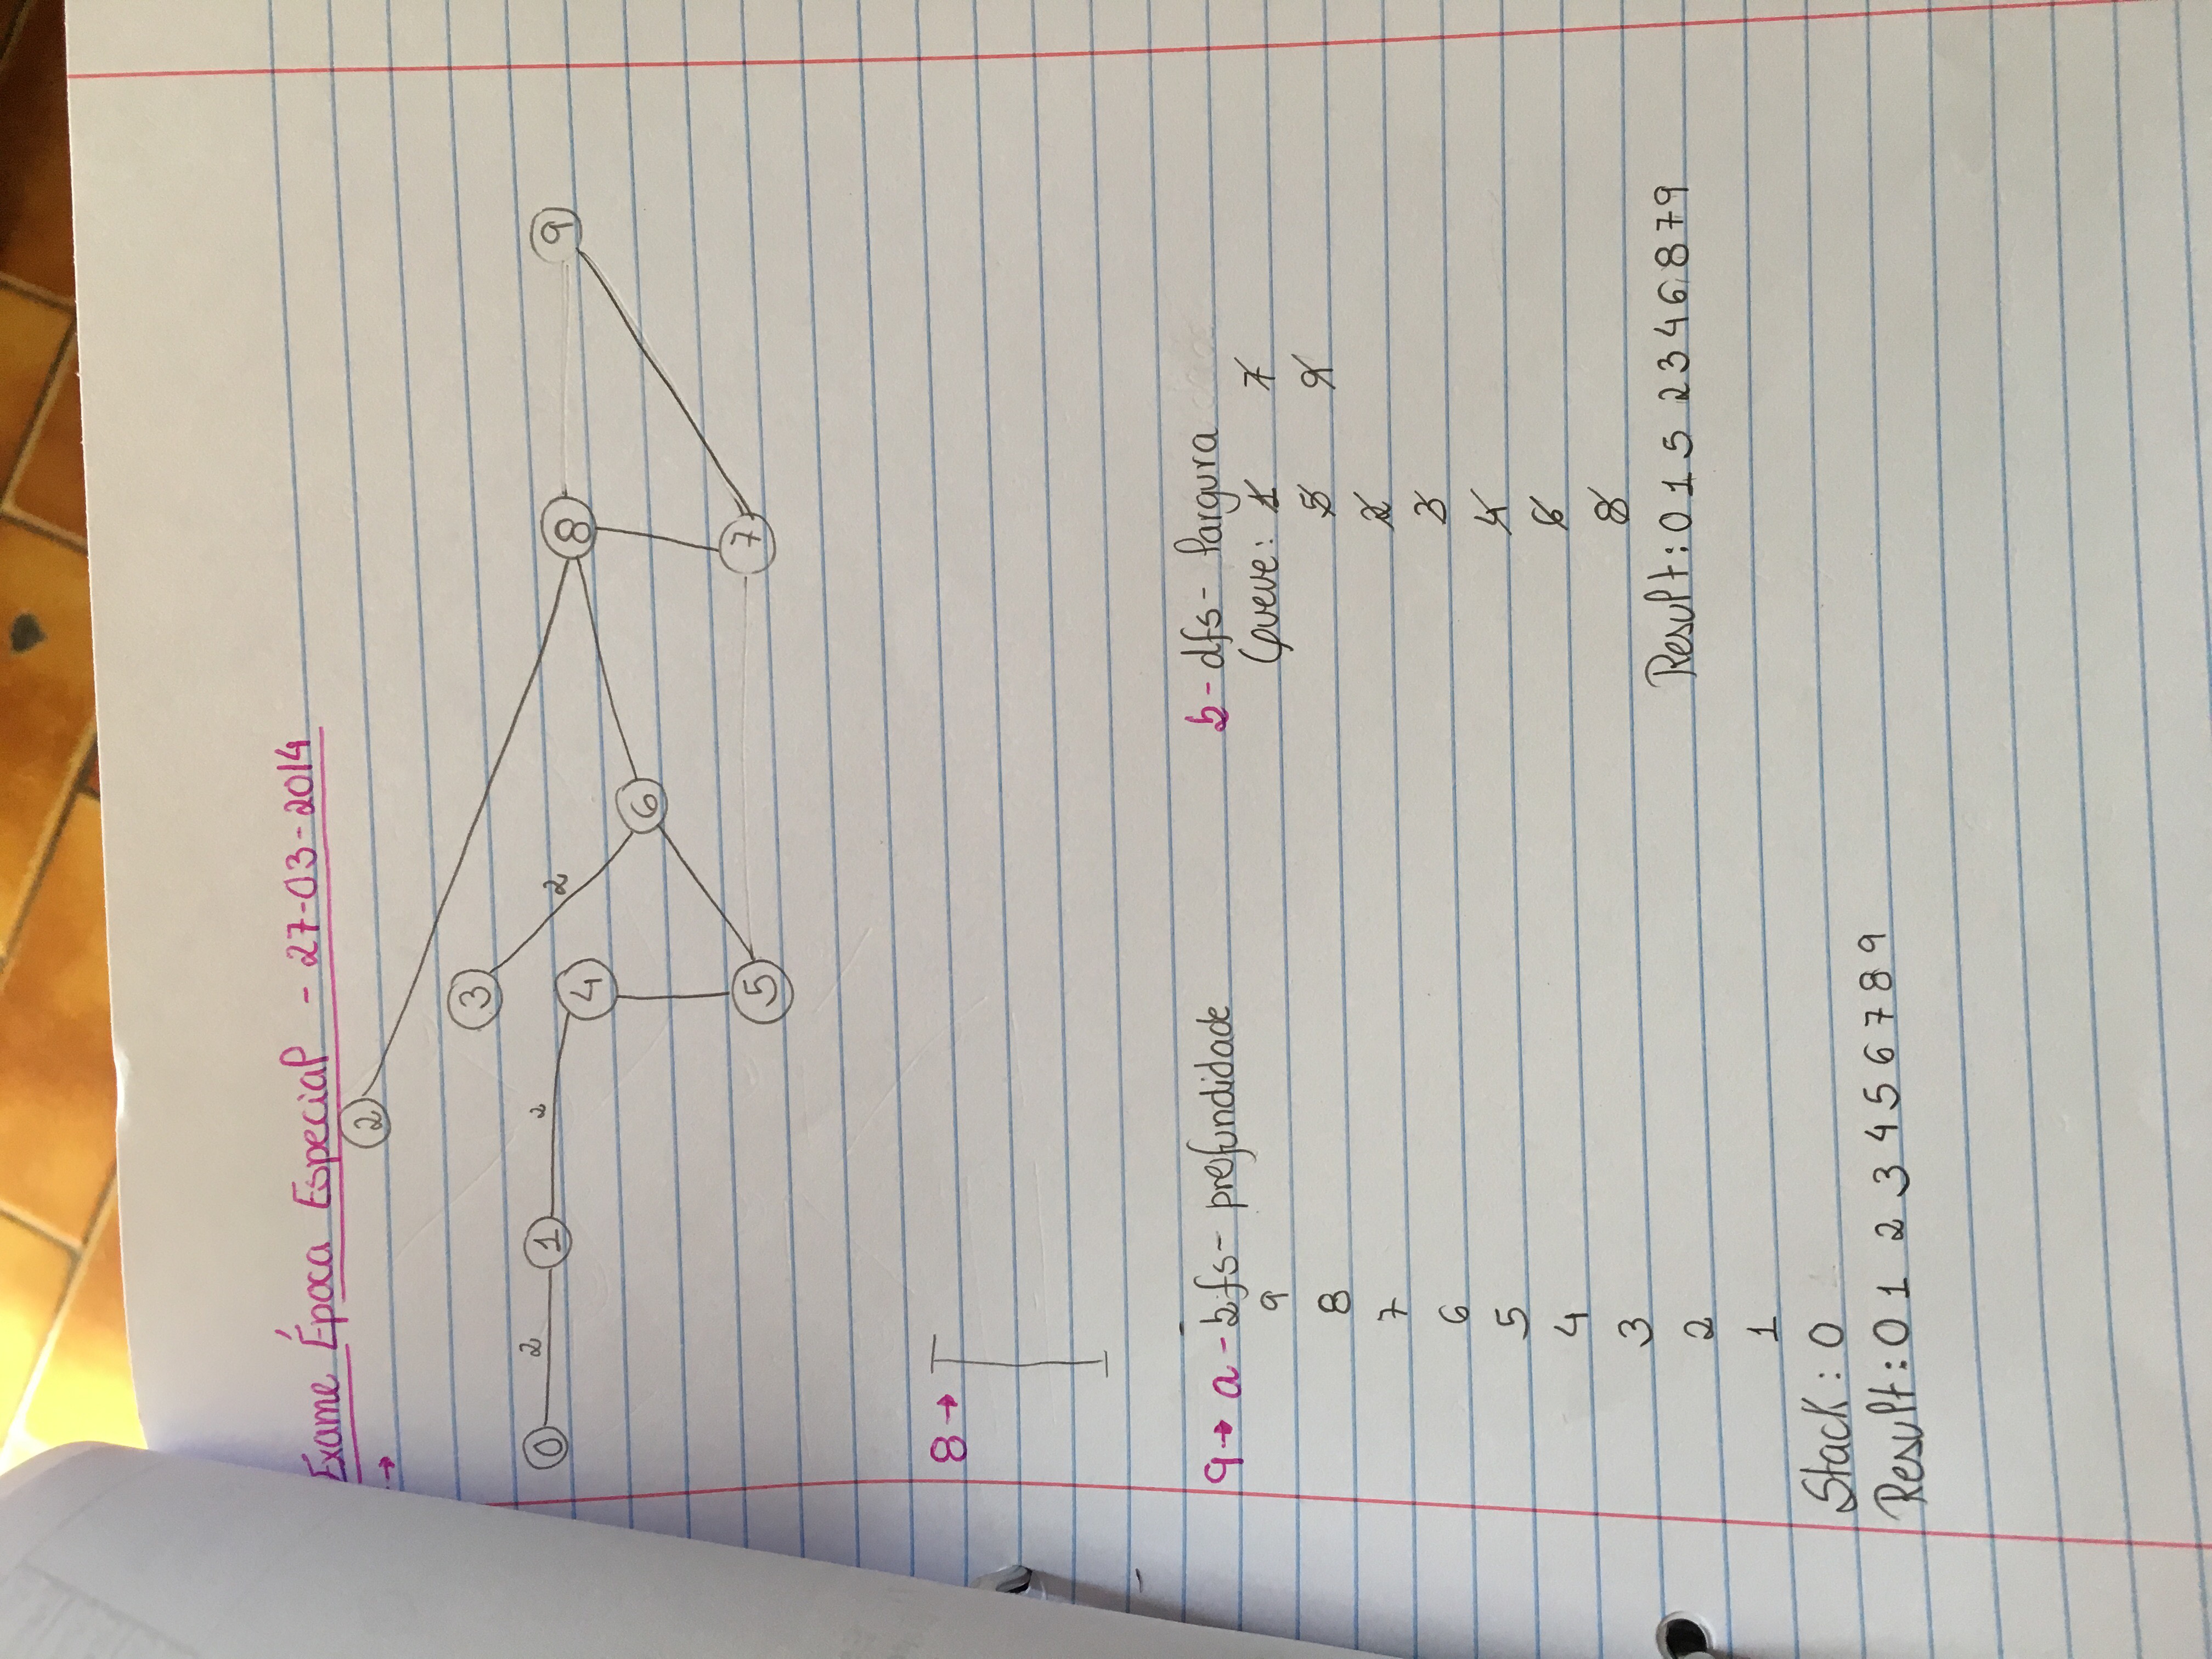 Exame Época Especial - 27-03-2014
→
2
3
0 2 1 2 4 2 6 8 9
5 7
8 →
9 → a - bfs - profundidade
9
8
7
6
5
4
3
2
1
Stack: 0
Result: 0 1 2 3 4 5 6 7 8 9
b - dfs - largura
Queue: 1 7
5 9
2
3
4
6
8
Result: 0 1 5 2 3 4 6 8 7 9